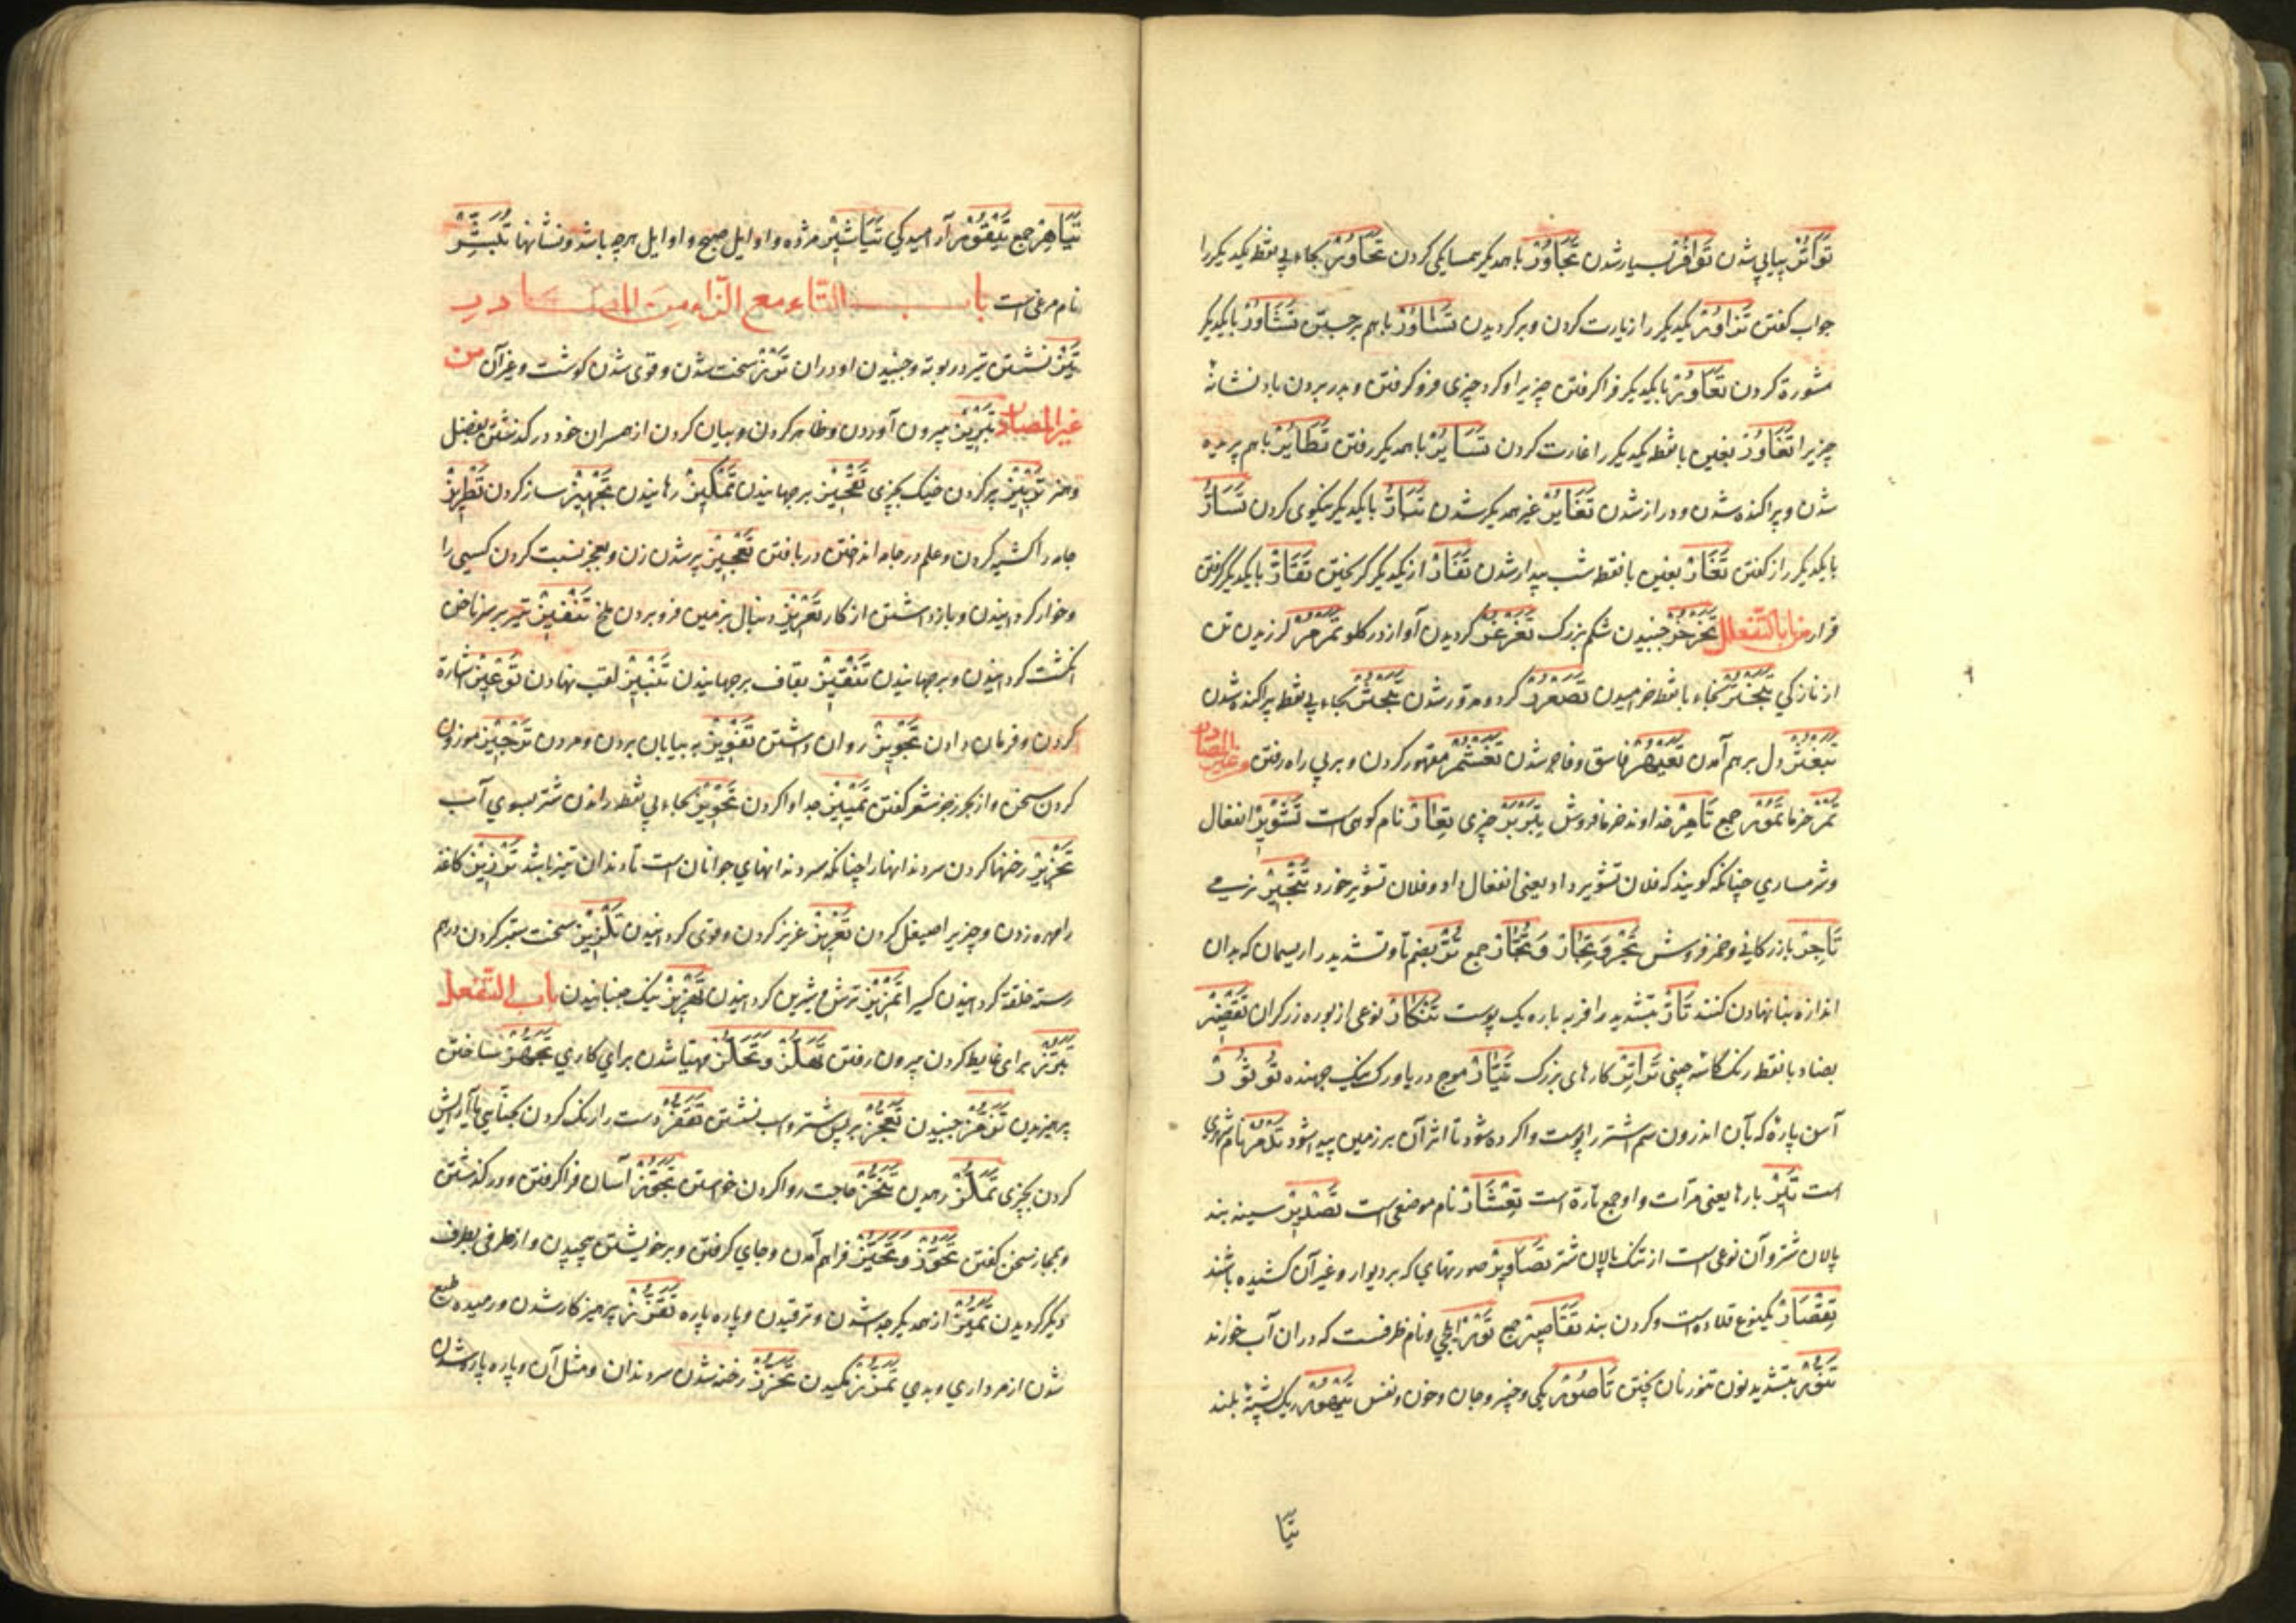 تَوَاتُرْ پیاپی شدن تَوَافُرْ بسیار شدن تَجَاوُرْ با همدیکر همسایکی کردن تَحَاوُرْ بحاء بی نقطه یکدیکر را
جواب کفتن تَزَاوُرْ یکدیکر را زیارت کردن وبرکردیدن تَسَاوُرْ باهم برجستن تَشَاوُرْ بایکدیکر
مشورة کردن تَعَاوُرْ بایکدیکر فراکرفتن چیزیرا وکرد چیزی فروکرفتن وبدر بردن باد نشانهٔ
چیزیرا تَغَاوُرْ بغین با نقطه یکدیکر را غارت کردن تَسَایُرْ با همدیکر رفتن تَطَایُرْ باهم پریدن
شدن وپراکنده شدن ودراز شدن تَغَایُرْ غیر همدیکر شدن تَبَارُّ بایکدیکر نیکوی کردن تَسَارُّ
بایکدیکر راز کفتن تَعَارّْ بعین شب بیدار شدن تَفَارّْ از یکدیکر کریختن تَقَارّْ بایکدیکر کرفتن
قرار من باب التفعلل تَخَرْخُرْ جنبیدن شکم بزرک تَغَرْغُرْ کردیدن آواز در کلو تَمَرْمُرْ لرزیدن تن
از نازکی تَبَخْتُرْ بخاء با نقطه خرامیدن تَصَعْرُرْ کرد ومدور شدن تَبَحْثُرْ بحاء بی نقطه پراکنده شدن
تَبَغْثُرْ دل برهم آمدن تَعَیْهُرْ فاسق وفاجر شدن تَغَشْمُرْ مقهور کردن وبر بی راه رفتن من غیر المصادر
تَمْرْ خرما تُمُوْرْ جمع تَامِرْ خداوند خرما وخرما فروش تَبَرْبُرْ چیزی تِعَارْ نام کوهی است تَشْوِیْرْ انفعال
وشرمساری چنانکه کویند که فلان تشویر داد یعنی انفعال داد وفلان تشویر خورد
تَاجِرْ بازرکانی وخمر فروش تَجْرْ وَتِجَارْ وَتُجَّارْ جمع تُرّْ بضم تا وتشدید را ریسمان که بدان
اندازه بنا نهادن کنند تَارّْ بتشدید را فربه تِنْکَارْ نوعی از بوره زرکران
بضاد با نقطه رنک کاسه چینی کارهای بزرک تَیَّارْ موج دریا ورک نیک جهنده تُؤْثُوْرْ
آهن پارهٔ که بآن اندرون سم اشتر را پوست واکرده شود تا اثر آن بر زمین پیدا شود تَدْمُرْ نام شهری
است تِیَرْ بارها یعنی مرّات واو جمع تارة است تِعْشَارْ نام موضعی است تَصْدِیْرْ سینه بند
پالان شتر وآن نوعی است از تنک پالان شتر تَصَاوِیْرْ صورتهای که بر دیوار وغیر آن کشیده باشند
تِقْصَارْ یکنوع قلاده است وکردن بند تَقَاصِیْرْ جمع تَوْرْ ایلچی ونام ظرفست که دران آب خورند
تَنُّوْرْ بتشدید نون تنور نان پختن تَامُوْرْ یکی وچیز وجان وخون ونفس تَیْهُوْرْ ریک پشتهٔ بلند
تیا
تَیَاهِرْ جمع تَیْقُوْرْ آرامیدکی تَبَاشِیْرْ مژده واوایل صبح واوایل هرچه باشد ونشانها تُبَشِّرْ
نام مرغی است باب التاء مع الزاء من المصادر
تَرْزْ نشستن تیر در بوته وجنبیدن او دران سخت شدن وقوی شدن کوشت وغیر آن من
غیر المصادر تَبْرِیْزْ بیرون آوردن وظاهر کردن وبیان کردن از همسران خود درکذشتن بفضل
وهنر پر کردن خیک بچیزی تَقْحِیْزْ برجهانیدن رهانیدن تَجْهِیْزْ ساز کردن تَطْرِیْزْ
جامه را کشیده کردن وعلم در جامه انداختن دربافتن تَعْجِیْزْ پیر شدن زن وبعجز نسبت کردن کسی را
وخوار کردانیدن وبازداشتن از کار تَغْرِیْزْ دنبال بزمین فروبردن ملخ تَنْفِیْزْ تیر بر سر ناخن
انکشت کردانیدن وبرجهانیدن تَنْقِیْزْ بقاف برجهانیدن تَنْبِیْزْ لقب نهادن تَوْعِیْزْ اشارة
کردن وفرمان دادن تَجْوِیْزْ روان داشتن تَفْوِیْزْ به بیابان بردن ومردن تَرْجِیْزْ موزون
کردن سخن واز بحر رجز شعر کفتن تَمْیِیْزْ جدا وا کردن تَحْوِیْزْ بحاء بی نقطه راندن شتر بسوی آب
تَحْزِیْزْ رخنها کردن سر دندانها را چنانکه سر دندانهای جوانان است تا دندان تیز باشد کاغذ
را مهره زدن وچیزیرا صیقل کردن تَعْزِیْزْ عزیز کردن وقوی کردانیدن تَلْزِیْزْ سخت ستبر کردن درهم
رسته خلقة کردانیدن کسیرا تَمْزِیْزْ ترش وشیرین کردانیدن تَهْزِیْزْ نیک جنبانیدن باب التفعل
تَبَرُّزْ برای غایط کردن بیرون رفتن مهیا شدن برای کاری تَجَهُّزْ ساختن
پرهیزیدن جنبیدن تَعَجُّزْ بر پس شتر واسب نشستن تَقَفُّزْ دست را رنک کردن بحنّا یا آرایش
کردن بچیزی تَمَلُّزْ رهیدن تَنَجُّزْ حاجت روا کردن خواستن تَجَوُّزْ آسان فراکرفتن ودرکذشتن
وبمجاز سخن کفتن تَحَوُّزْ وتَحَیُّزْ فراهم آمدن وجای کرفتن وبر خویشتن پیچیدن واز طرفی بطرف
دیکر کردیدن تَمَیُّزْ از همدیکر جدا شدن وترقیدن وپاره پاره تَقَزُّزْ پرهیزکار شدن ورمیده طبع
شدن از مرداری وبدی تَمَزُّزْ مکیدن تَحَزُّزْ رخنه شدن سر دندان ومثل آن وپاره پاره شدن